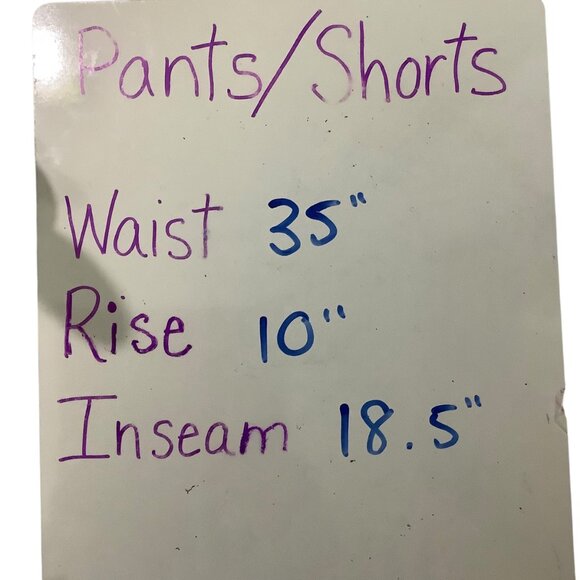 Pants/Shorts
Waist 35"
Rise 10"
Inseam 18.5"